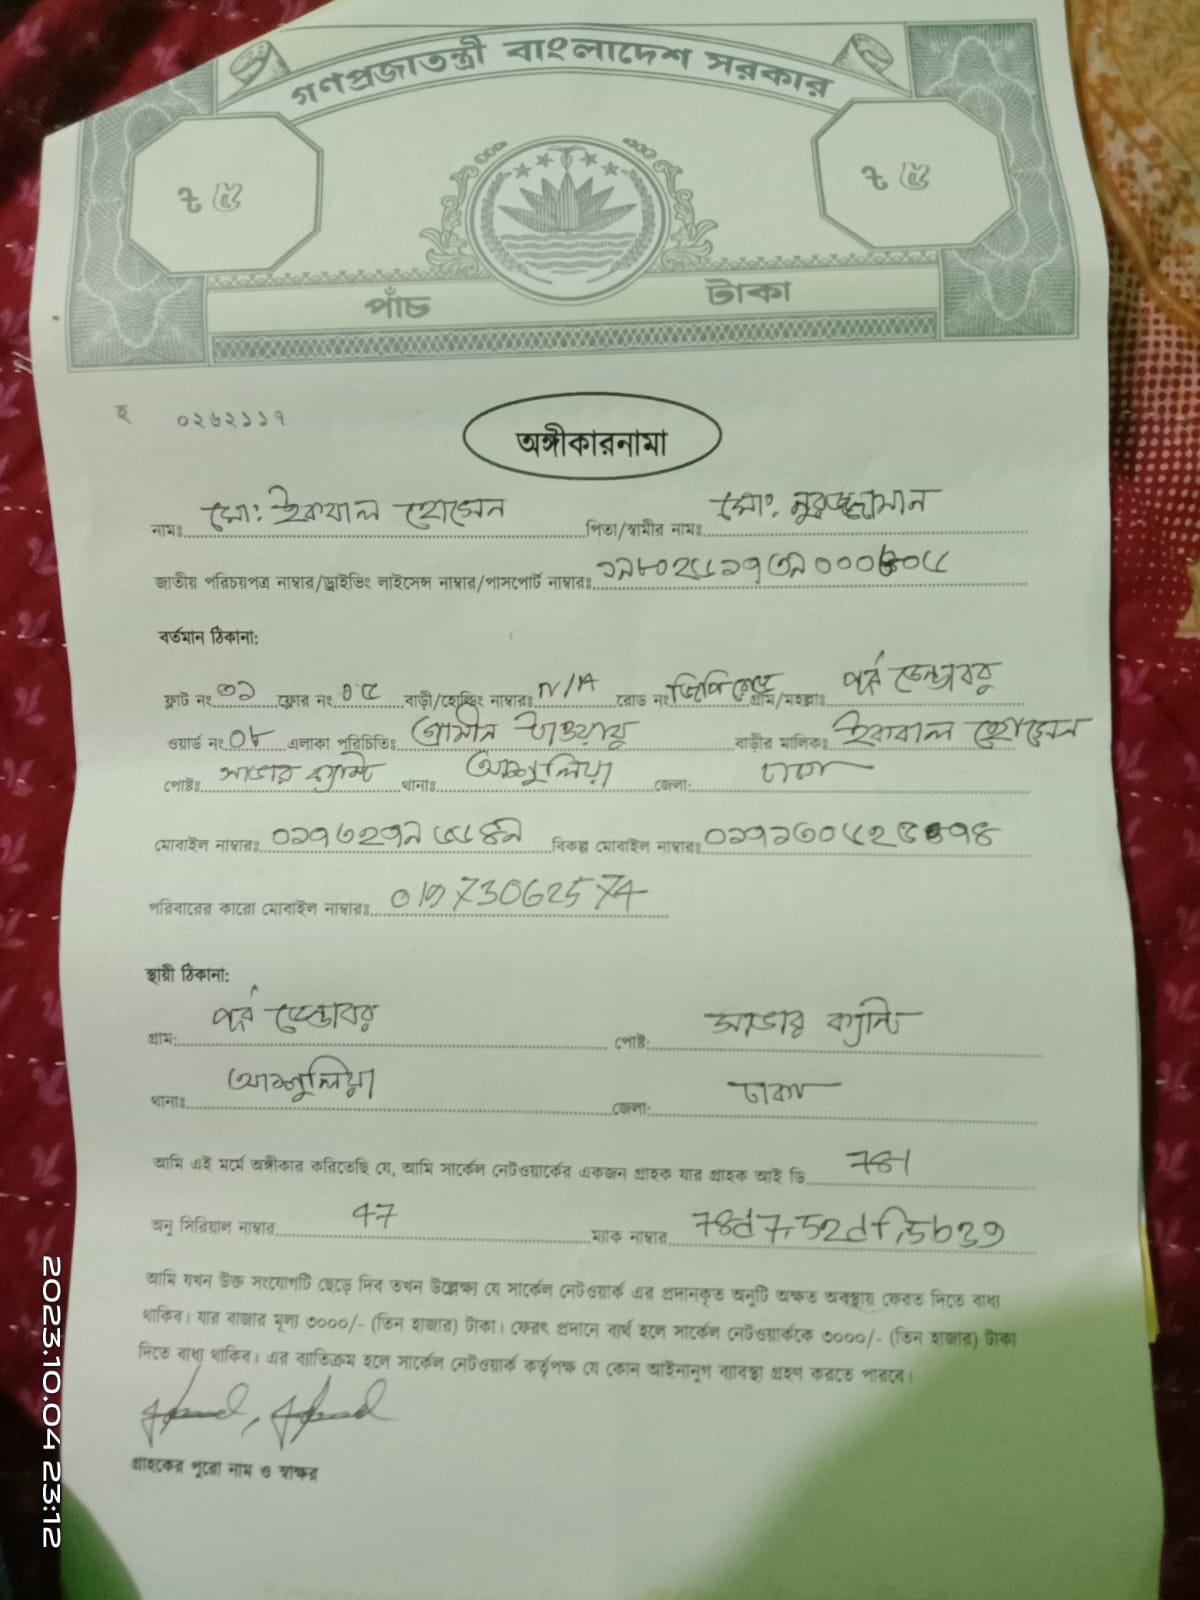 গণপ্রজাতন্ত্রী বাংলাদেশ সরকার
৳ ৫ ৳ ৫
পাঁচ টাকা
হ ০২৬২১১৭
অঙ্গীকারনামা
নামঃ মো: ইকবাল হোসেন পিতা/স্বামীর নামঃ মো: নুরুজ্জামান
জাতীয় পরিচয়পত্র নাম্বার/ড্রাইভিং লাইসেন্স নাম্বার/পাসপোর্ট নাম্বারঃ
বর্তমান ঠিকানা:
ফ্লাট নংঃ ৩১ ফ্লোর নংঃ বাড়ী/হোল্ডিং নাম্বারঃ N/A রোড নংঃ জিপি রোড গ্রাম/মহল্লাঃ পূর্ব ডেন্ডাবর
ওয়ার্ড নংঃ ০৮ এলাকা পরিচিতিঃ গ্রামীন টাওয়ার বাড়ীর মালিকঃ ইকবাল হোসেন
পোষ্টঃ সাভার ক্যান্ট থানাঃ আশুলিয়া জেলা: ঢাকা
মোবাইল নাম্বারঃ বিকল্প মোবাইল নাম্বারঃ
পরিবারের কারো মোবাইল নাম্বারঃ 01973062574
স্থায়ী ঠিকানা:
গ্রাম: পূর্ব ডেন্ডাবর পোষ্ট: সাভার ক্যান্ট
থানাঃ আশুলিয়া জেলা: ঢাকা
আমি এই মর্মে অঙ্গীকার করিতেছি যে, আমি সার্কেল নেটওয়ার্কের একজন গ্রাহক যার গ্রাহক আই ডি 781
অনু সিরিয়াল নাম্বার 47 ম্যাক নাম্বার
আমি যখন উক্ত সংযোগটি ছেড়ে দিব তখন উল্লেক্ষ্য যে সার্কেল নেটওয়ার্ক এর প্রদানকৃত অনুটি অক্ষত অবস্থায় ফেরত দিতে বাধ্য
থাকিব। যার বাজার মূল্য ৩০০০/- (তিন হাজার) টাকা। ফেরৎ প্রদানে ব্যর্থ হলে সার্কেল নেটওয়ার্ককে ৩০০০/- (তিন হাজার) টাকা
দিতে বাধ্য থাকিব। এর ব্যতিক্রম হলে সার্কেল নেটওয়ার্ক কর্তৃপক্ষ যে কোন আইনানুগ ব্যাবস্থা গ্রহণ করতে পারবে।
গ্রাহকের পুরো নাম ও স্বাক্ষর
2023.10.04 23:12